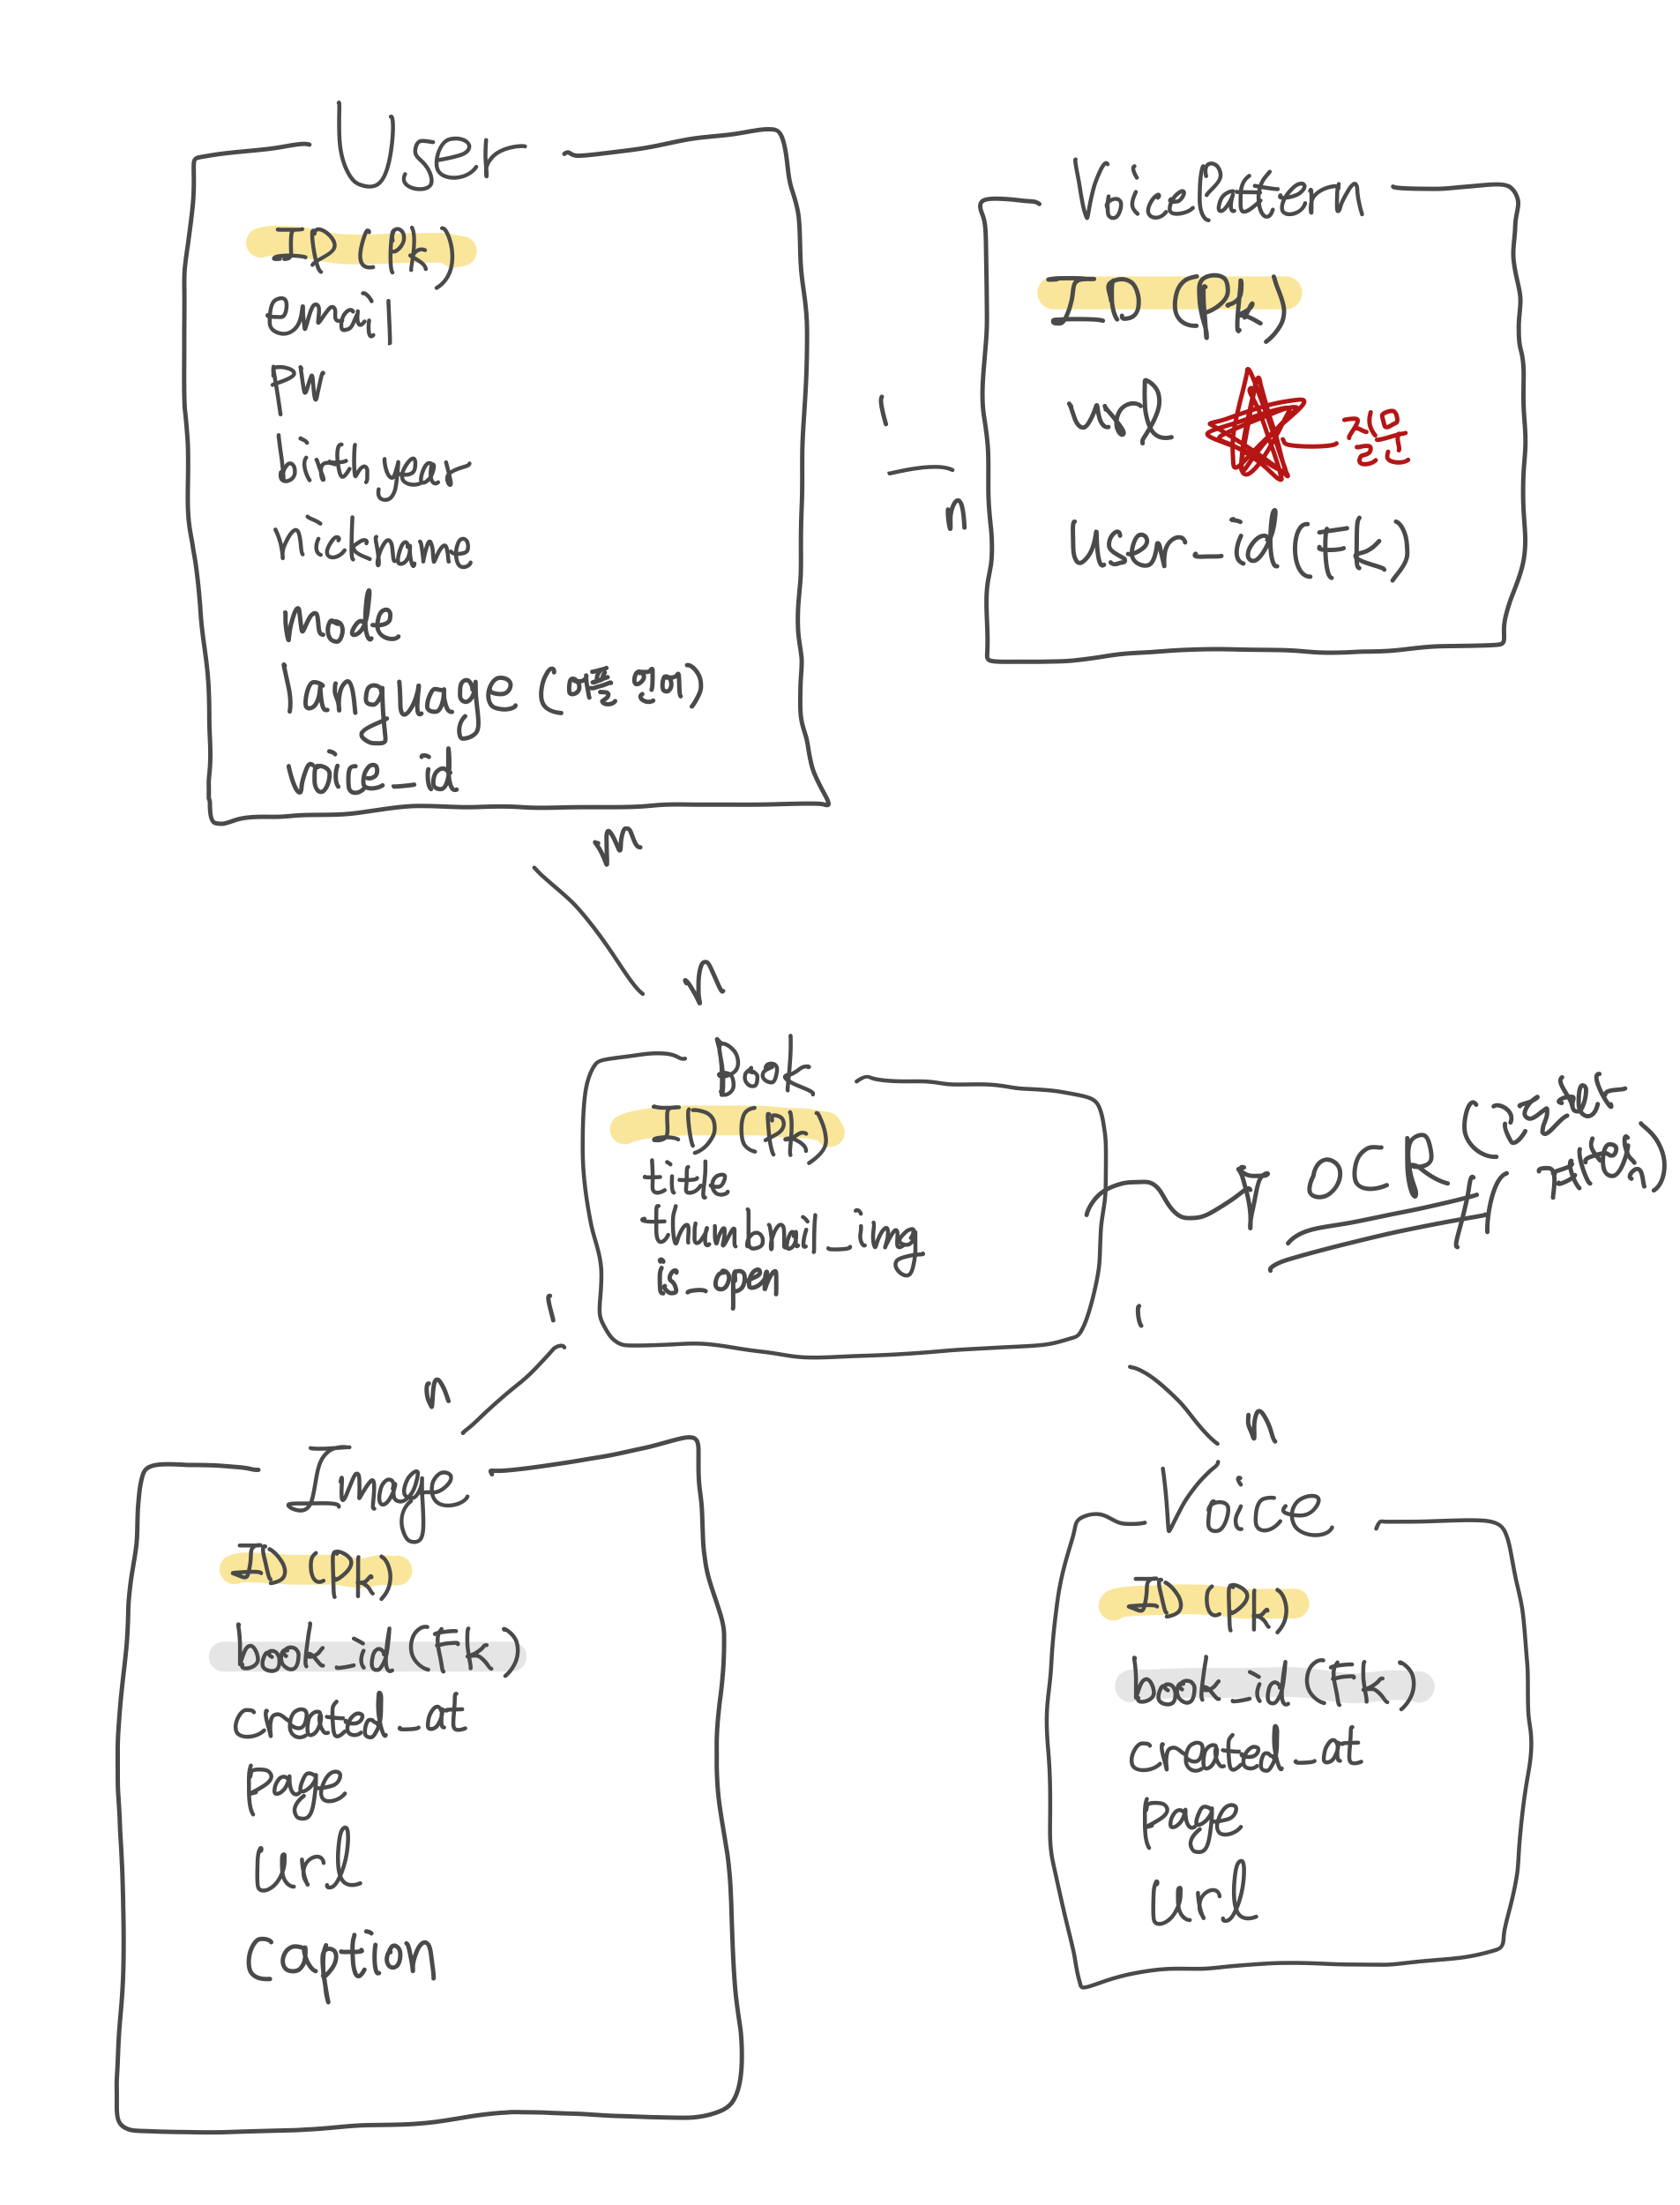 User
ID (PK)
email
pw
birthyear
nickname
mode
language (어플 언어)
voice_id
VoicePattern
ID (PK)
url
질문
user_id (FK)
1
n
m
n
Book
ID (PK)
title
thumbnail_img
is_open
OCR
1
n
1
n
Image
ID (PK)
book_id (FK)
created_at
page
url
caption
Voice
ID (PK)
book_id (FK)
created_at
page
url